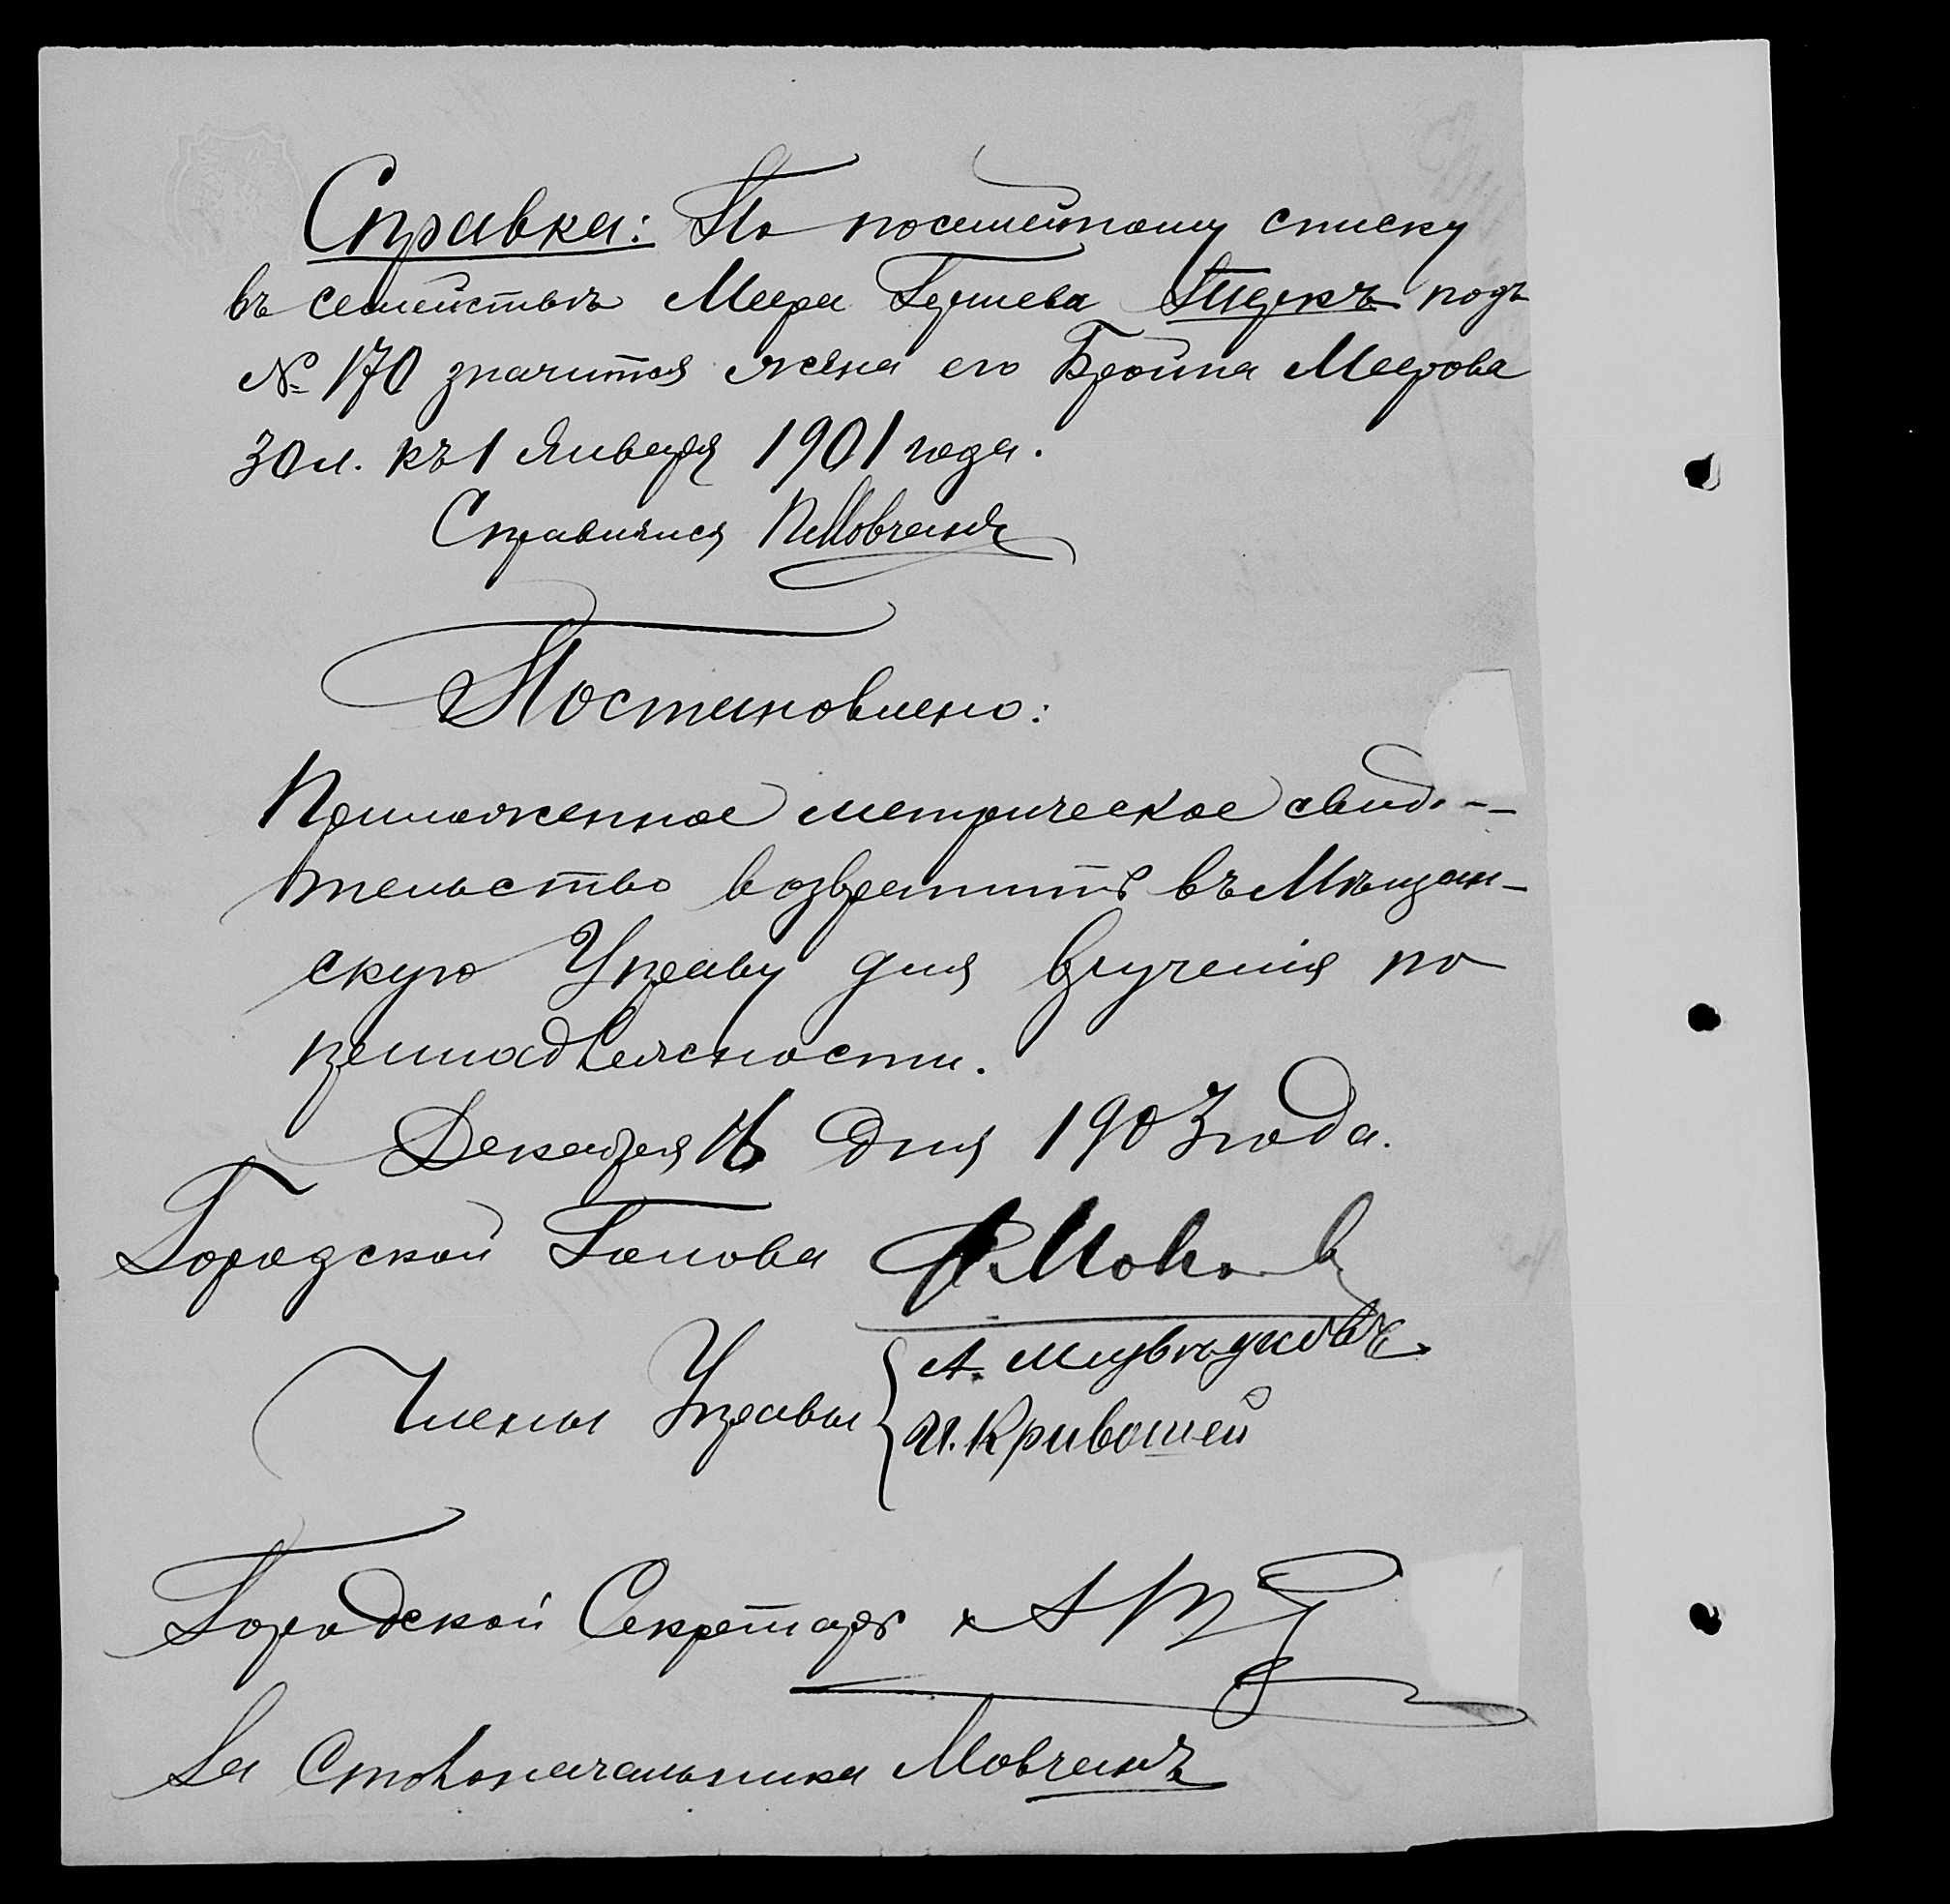 Справка: По посемейному списку
въ семействѣ Меера Гершева Теркъ подъ
№ 170 значится жена его Бройна Меерова
30 л. къ 1 Января 1901 года.
Справился П Мовчанъ
Постановлено:
Приложенное метрическое свидѣ-
тельство возвратить въ Мѣщан-
скую Управу для врученія по
принадлежности.
Декабря 16 дня 1903 года.
Городской Голова
Члены Управы
И. Кривошей
Городской Секретарь
За Столоначальника Мовчанъ